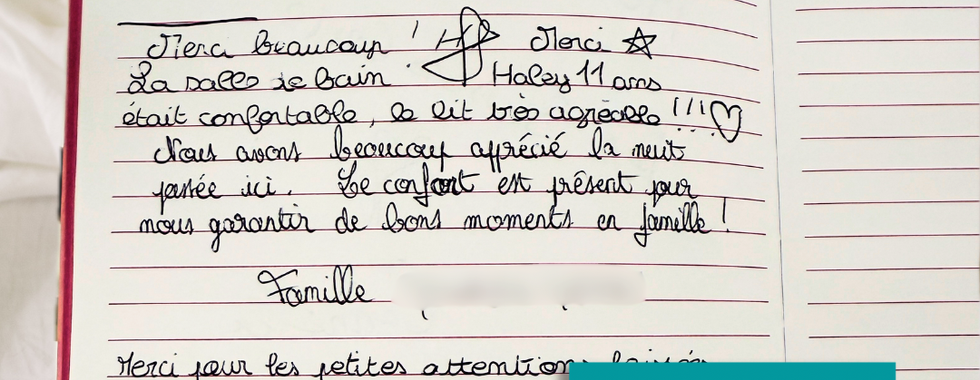 Merci beaucoup ! Merci ☆
La salle de bain Haley 11 ans
était confortable, le lit très agréable !!! ♡
Nous avons beaucoup apprécié la nuit
passée ici. Le confort est présent pour
nous garantir de bons moments en famille !
Famille
Merci pour les petites attentions